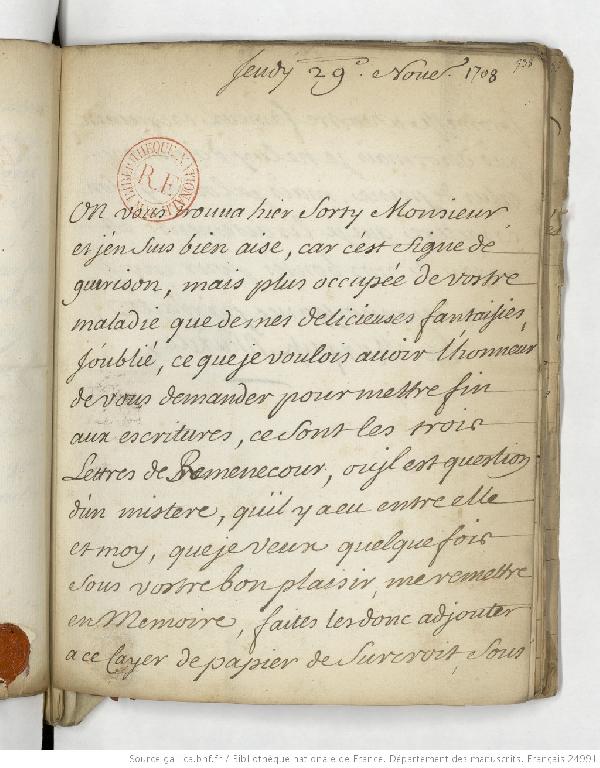 Jeudy 29e. Nove. 1708
938
BIBLIOTHEQUE NATIONALE
R.F.
On vous trouua hier Sorty Monsieur,
et j'en Suis bien aise, car c'est Signe de
guerison, mais plus occupée de vostre
maladie que de mes delicieuses fantaisies,
J'oublié, ce que je voulois auoir l'honneur
de vous demander pour mettre fin
aux escritures, ce Sont les trois
Lettres de Remenecour, ou jl est question
d'un mistere, qu'il y a eu entre elle
et moy, que je veux quelque fois
Sous vostre bon plaisir, me remettre
en Memoire, faites les donc adjouter
a ce Cayer de papier de Surcroit, Sous
Source gallica.bnf.fr / Bibliothèque nationale de France. Département des manuscrits. Français 24991